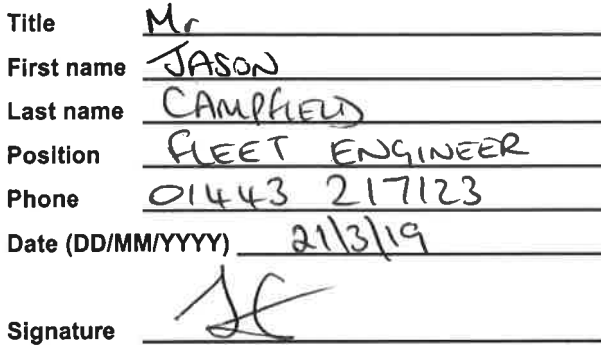 Title Mr
First name JASON
Last name CAMPFIELD
Position FLEET ENGINEER
Phone 01443 217123
Date (DD/MM/YYYY) 21/3/19
Signature